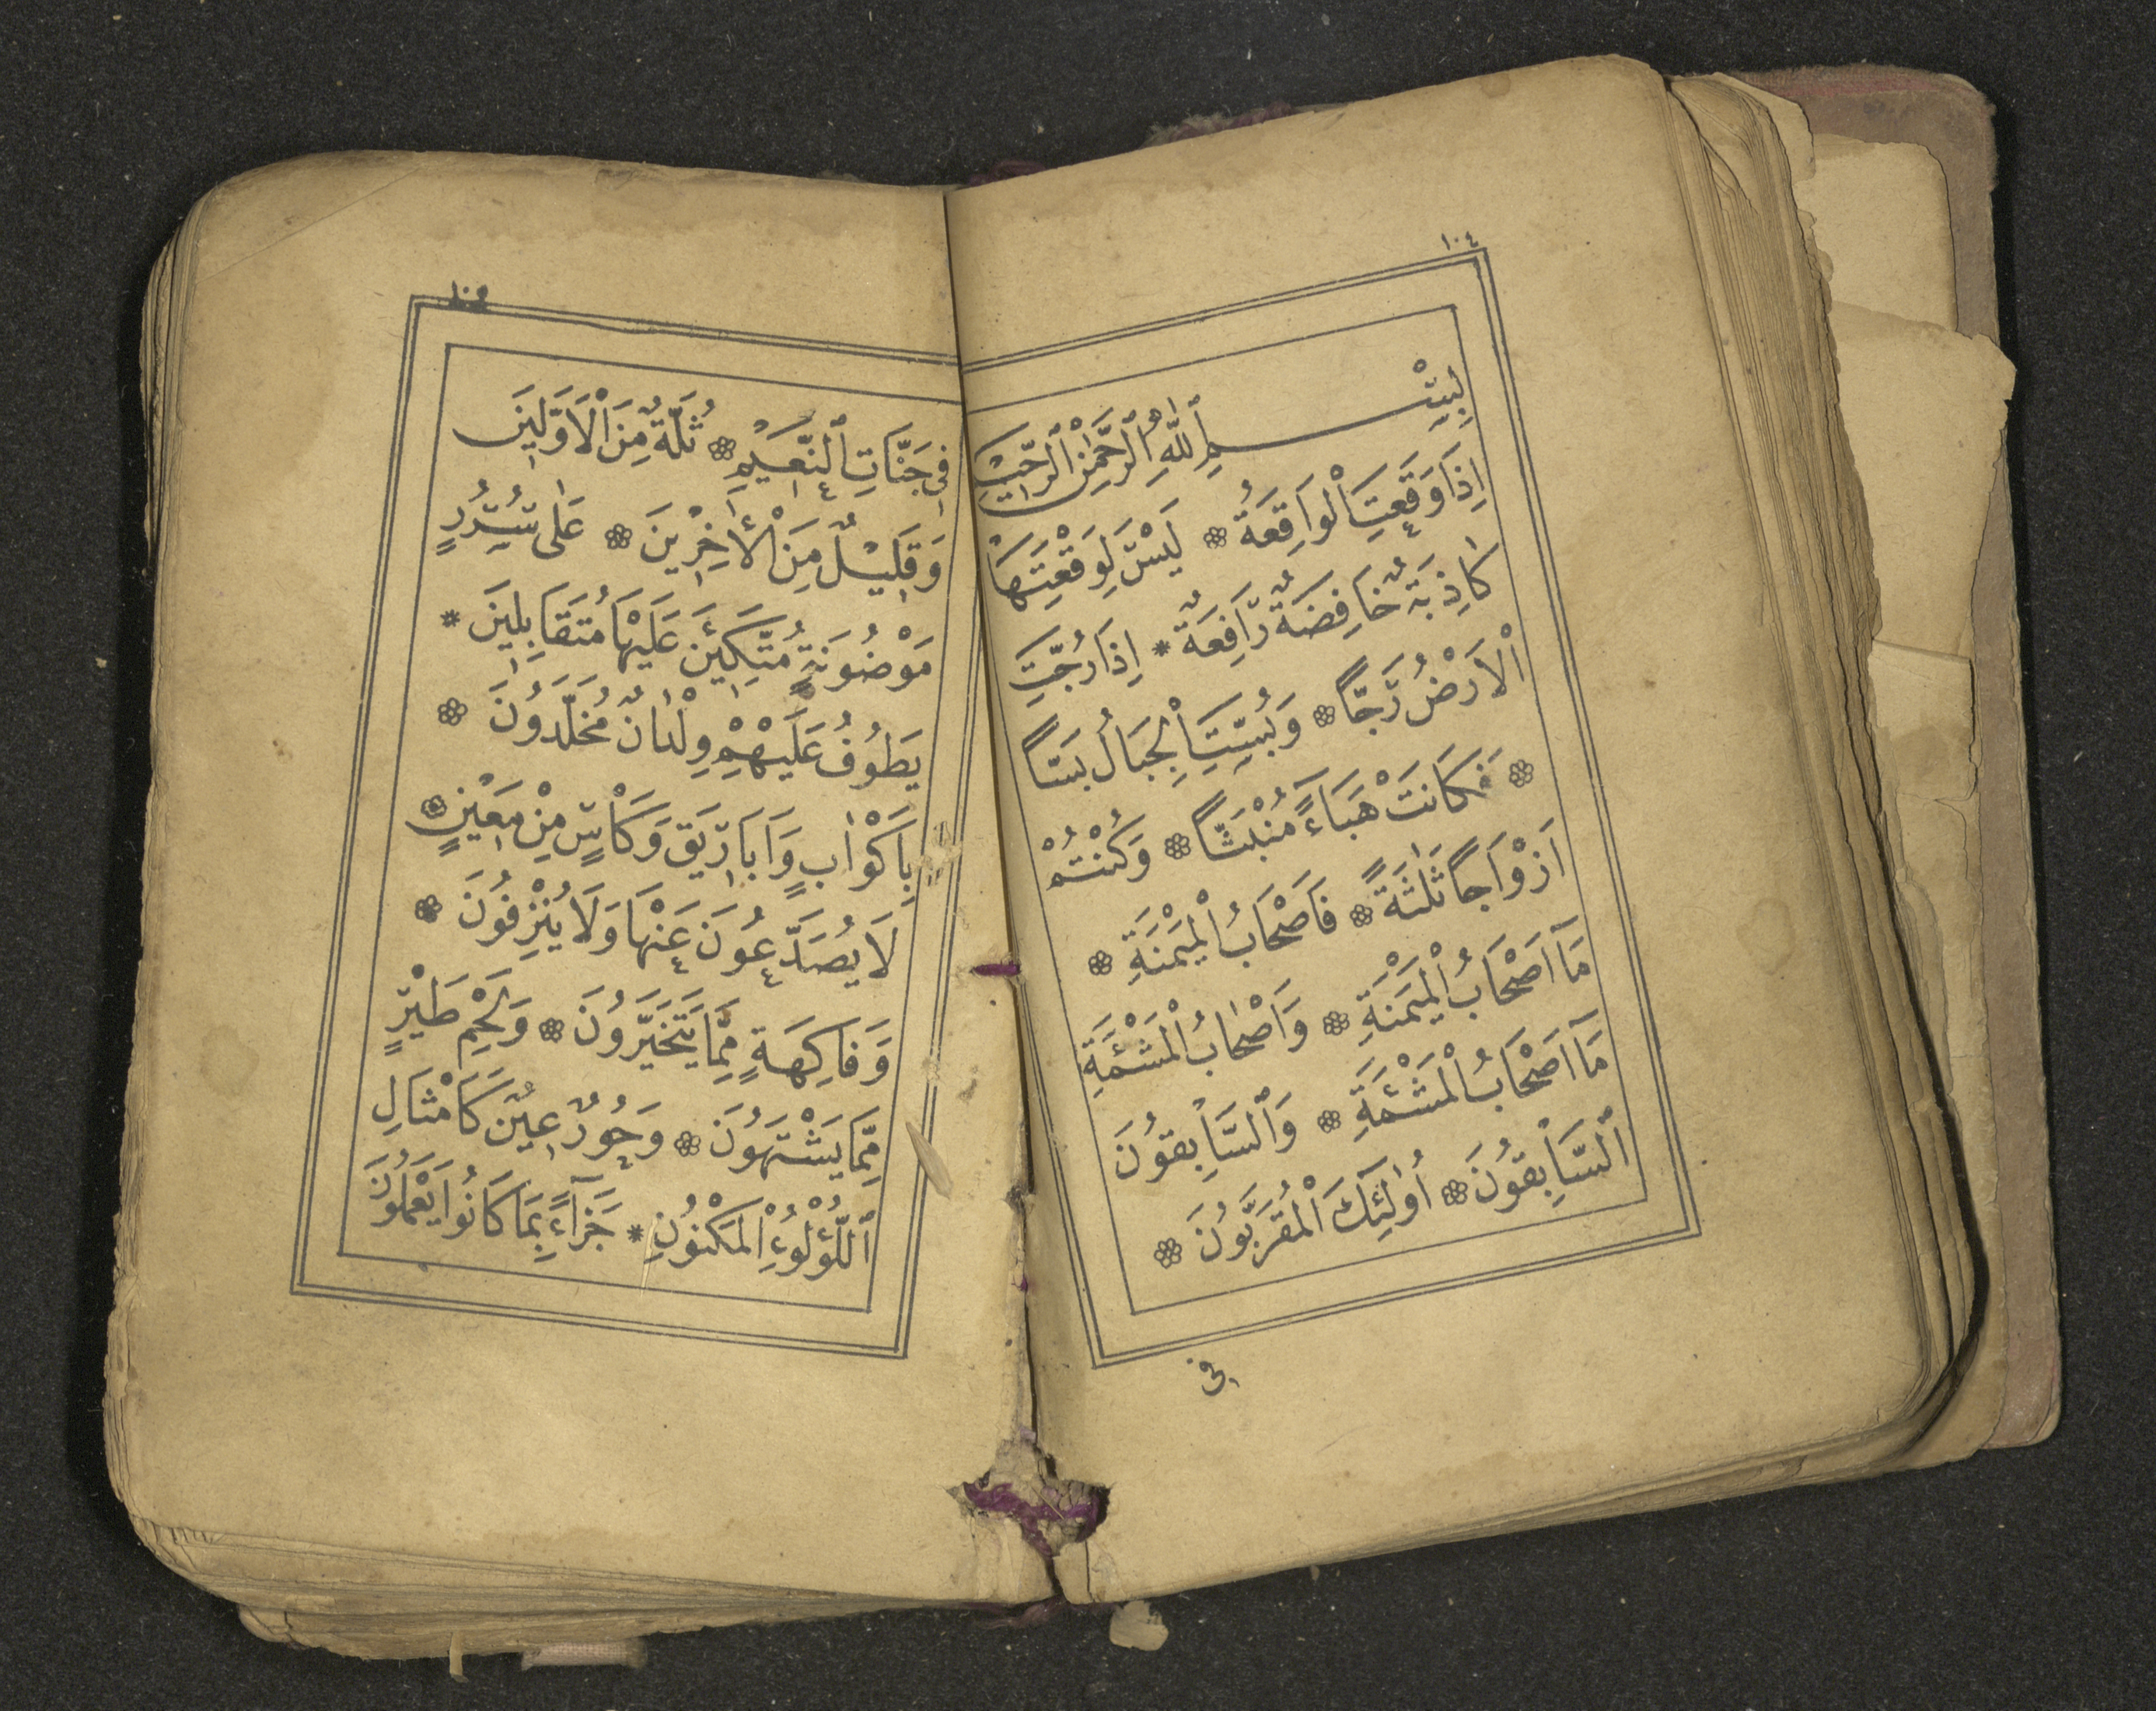 ١٠٤
بِسْمِ اللّٰهِ الرَّحْمٰنِ الرَّحِيمِ
اِذَا وَقَعَتِ الْوَاقِعَةُ ۞ لَيْسَ لِوَقْعَتِهَا
كَاذِبَةٌ خَافِضَةٌ رَافِعَةٌ * اِذَا رُجَّتِ
الْاَرْضُ رَجًّا ۞ وَبُسَّتِ الْجِبَالُ بَسًّا
۞ فَكَانَتْ هَبَاءً مُنْبَثًّا ۞ وَكُنْتُمْ
اَزْوَاجًا ثَلٰثَةً ۞ فَاَصْحَابُ الْمَيْمَنَةِ ۞
مَآ اَصْحَابُ الْمَيْمَنَةِ ۞ وَاَصْحَابُ الْمَشْئَمَةِ
مَآ اَصْحَابُ الْمَشْئَمَةِ ۞ وَالسَّابِقُونَ
السَّابِقُونَ ۞ اُولٰئِكَ الْمُقَرَّبُونَ ۞
فى
١٠٥
فِى جَنَّاتِ النَّعِيمِ ۞ ثُلَّةٌ مِنَ الْاَوَّلِينَ
وَقَلِيلٌ مِنَ الْاٰخِرِينَ ۞ عَلٰى سُرُرٍ
مَوْضُونَةٍ مُتَّكِئِينَ عَلَيْهَا مُتَقَابِلِينَ *
يَطُوفُ عَلَيْهِمْ وِلْدَانٌ مُخَلَّدُونَ ۞
بِاَكْوَابٍ وَاَبَارِيقَ وَكَاْسٍ مِنْ مَعِينٍ ۞
لَا يُصَدَّعُونَ عَنْهَا وَلَا يُنْزِفُونَ ۞
وَفَاكِهَةٍ مِمَّا يَتَخَيَّرُونَ ۞ وَلَحْمِ طَيْرٍ
مِمَّا يَشْتَهُونَ ۞ وَحُورٌ عِينٌ كَاَمْثَالِ
اللُّؤْلُؤِ الْمَكْنُونِ * جَزَآءً بِمَا كَانُوا يَعْمَلُونَ